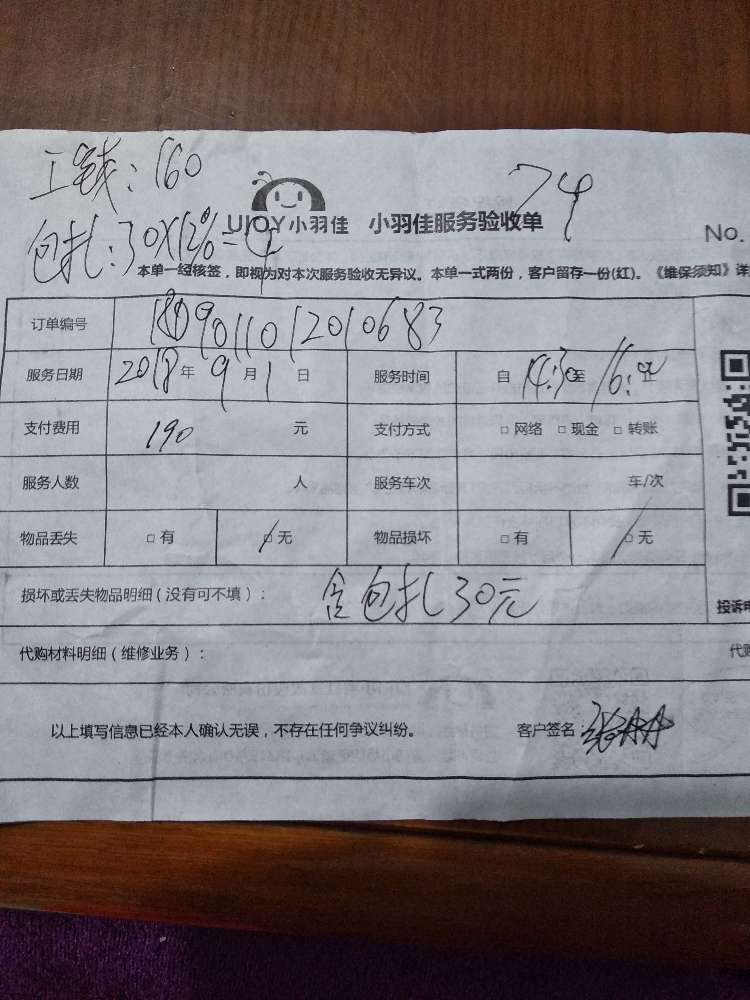 工钱：160
74
UJOY小羽佳 小羽佳服务验收单
No.
包扎：30X12%=4
本单一经核签，即视为对本次服务验收无异议。本单一式两份，客户留存一份(红)。《维保须知》详
订单编号 180901101201010683
服务日期 2018年9月1日 服务时间 自14:30至16:00止
支付费用 190 元 支付方式 □ 网络 □ 现金 □ 转账
服务人数 人 服务车次 车/次
物品丢失 □ 有 □ 无 物品损坏 □ 有 □ 无
损坏或丢失物品明细（没有可不填）： 含包扎30元
投诉电
代购材料明细（维修业务）： 代购
以上填写信息已经本人确认无误，不存在任何争议纠纷。 客户签名: